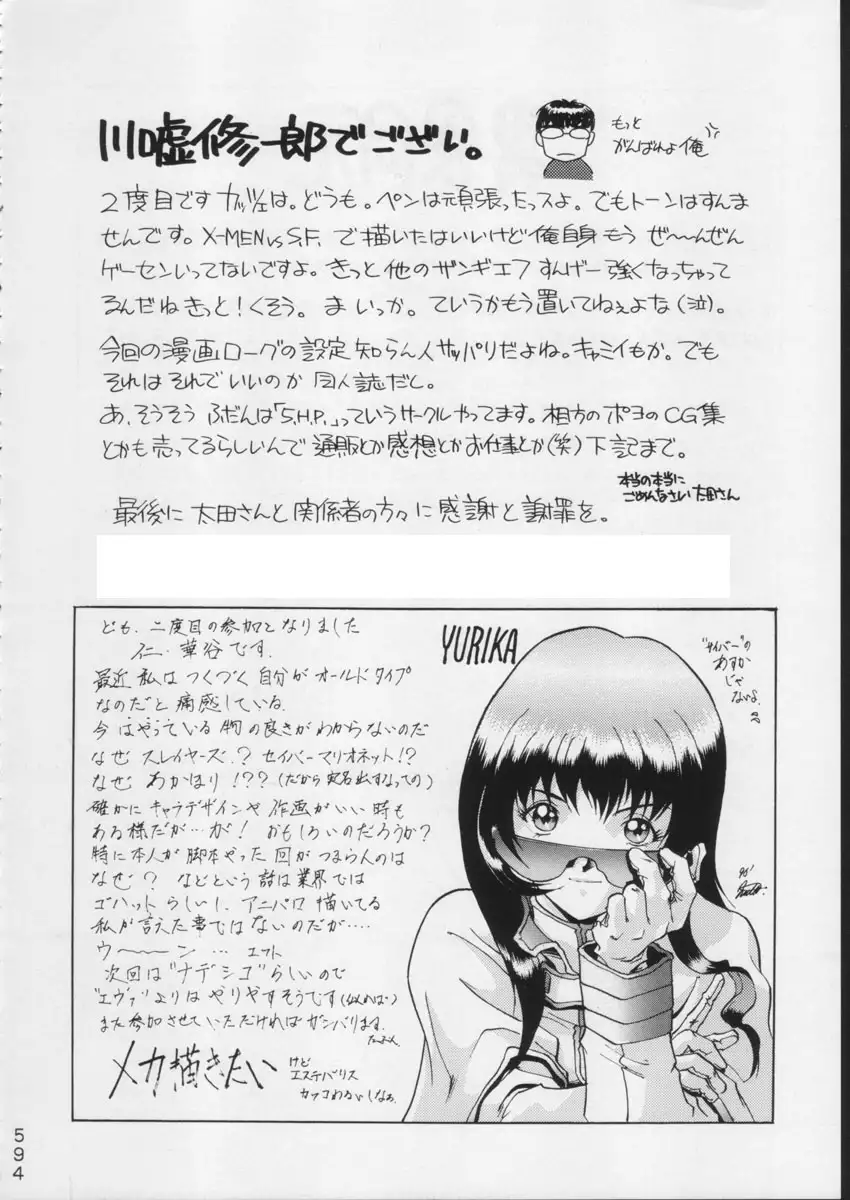 川口嘘修一郎でござい。
もっと
がんばれよ俺
2度目です カッツェは。どうも。ペンは頑張ったっスよ。でもトーンはすんま
せんです。X-MEN vs S.F. で描いたはいいけど俺自身もう ぜ〜〜んぜん
ゲーセンいってないですよ。きっと他のザンギエフ すんげー強くなっちゃって
るんだねきっと!くそう。まいっか。ていうかもう置いてねぇよな(泣)。
今回の漫画ローグの設定知らん人サッパリだよね。キャミイもか。でも
それはそれでいいのか同人誌だと。
あ、そうそう ふだんは「S.H.P.」っていうサークルやってます。相方のポヨのCG集
とかも売ってるらしいんで通販とか感想とかお仕事とか(笑)下記まで。
本当の本当に
ごめんなさい太田さん
最後に太田さんと関係者の方々に感謝と謝罪を。
ども、二度目の参加となりました
仁・華谷です。
最近私はつくづく自分がオールドタイプ
なのだと痛感している
今はやっている物の良さがわからないのだ
なぜ スレイヤーズ!? セイバーマリオネット!?
なぜ あかほり!??(だから実名出すなっての)
確かにキャラデザインや作画がいい時も
ある様だが…が! おもしろいのだろうか?
特に本人が脚本やった回がつまらんのは
なぜ? などという話は業界では
ゴハットらしいし、アニパロ描いてる
私が言えた事ではないのだが….
ウ〜〜〜ン…
次回は"ナデシコ"らしいので
"エヴァ"よりは やりやすそうです(似れば)
また参加させていただければガンバります。
メカ描きたい
けど
エステバリス
カッコわるいしなぁ。
YURIKA
"サイバー"の
あすか
じゃ
ないよ
96'
594